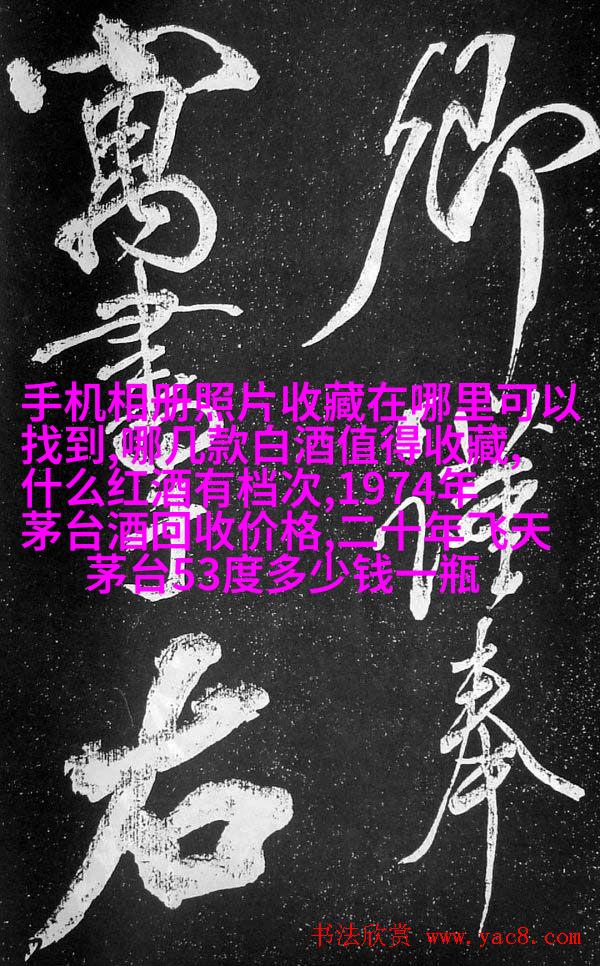 卿奉
寓書右
手机相册照片收藏在哪里可以
找到,哪几款白酒值得收藏,
什么红酒有档次,1974年
茅台酒回收价格,二十年飞天
茅台53度多少钱一瓶
书法欣赏 www.yac8.com